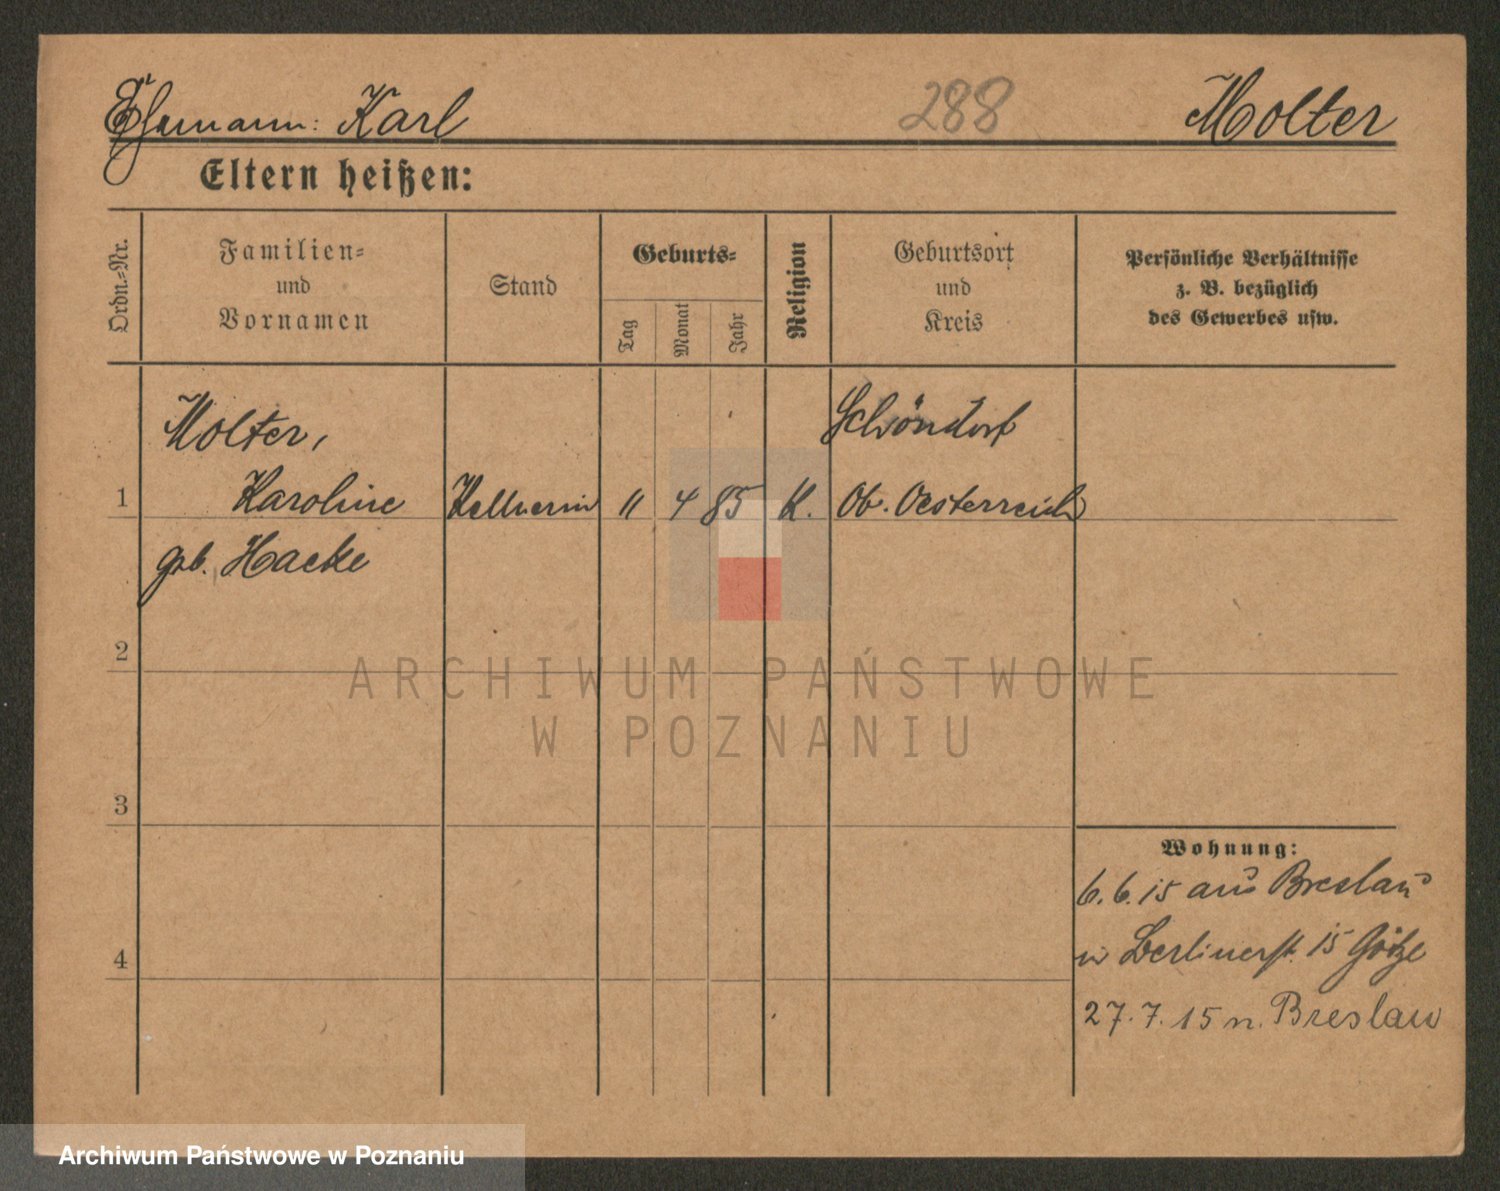 Ehemann: Karl 288 Molter
Eltern heißen:
Ordn.-Nr.
Familien-
und
Vornamen
Stand
Geburts-
Tag
Monat
Jahr
Religion
Geburtsort
und
Kreis
Persönliche Verhältnisse
z. B. bezüglich
des Gewerbes usw.
Molter, Schöndorf
1 Karoline Kellnerin 11 4 85 K. Ob. Oesterreich
geb. Hacke
2
3
4
Wohnung:
6.6.15 aus Breslau
n Berlinerst. 15 Götze
27.7.15 n. Breslau
ARCHIWUM PAŃSTWOWE
W POZNANIU
Archiwum Państwowe w Poznaniu